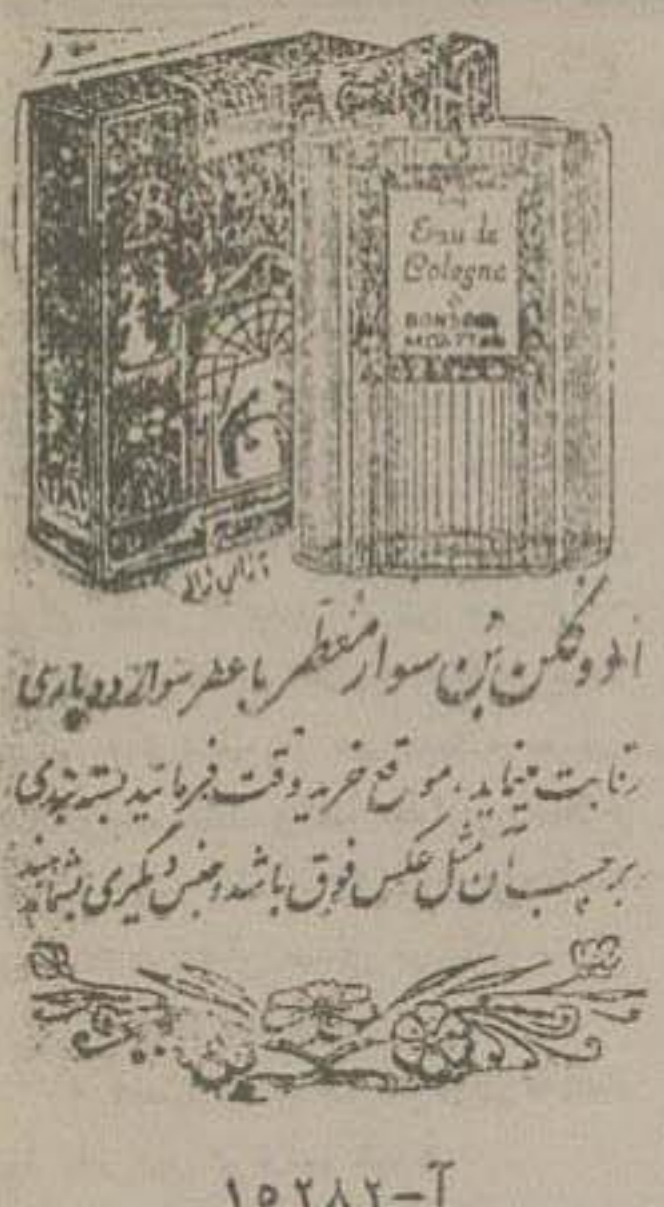 Eau de
Cologne
BONSOIR
MOATTAR
ادوکلن بُن سوار مُعَطَّر با عطر سوار دو پاری
رقابت مینماید، موقع خرید دقت فرمائید بسته بندی
برچسب آن مثل عکس فوق باشد، جنس دیگری بشما ندهند
آ-۱۵۲۸۲